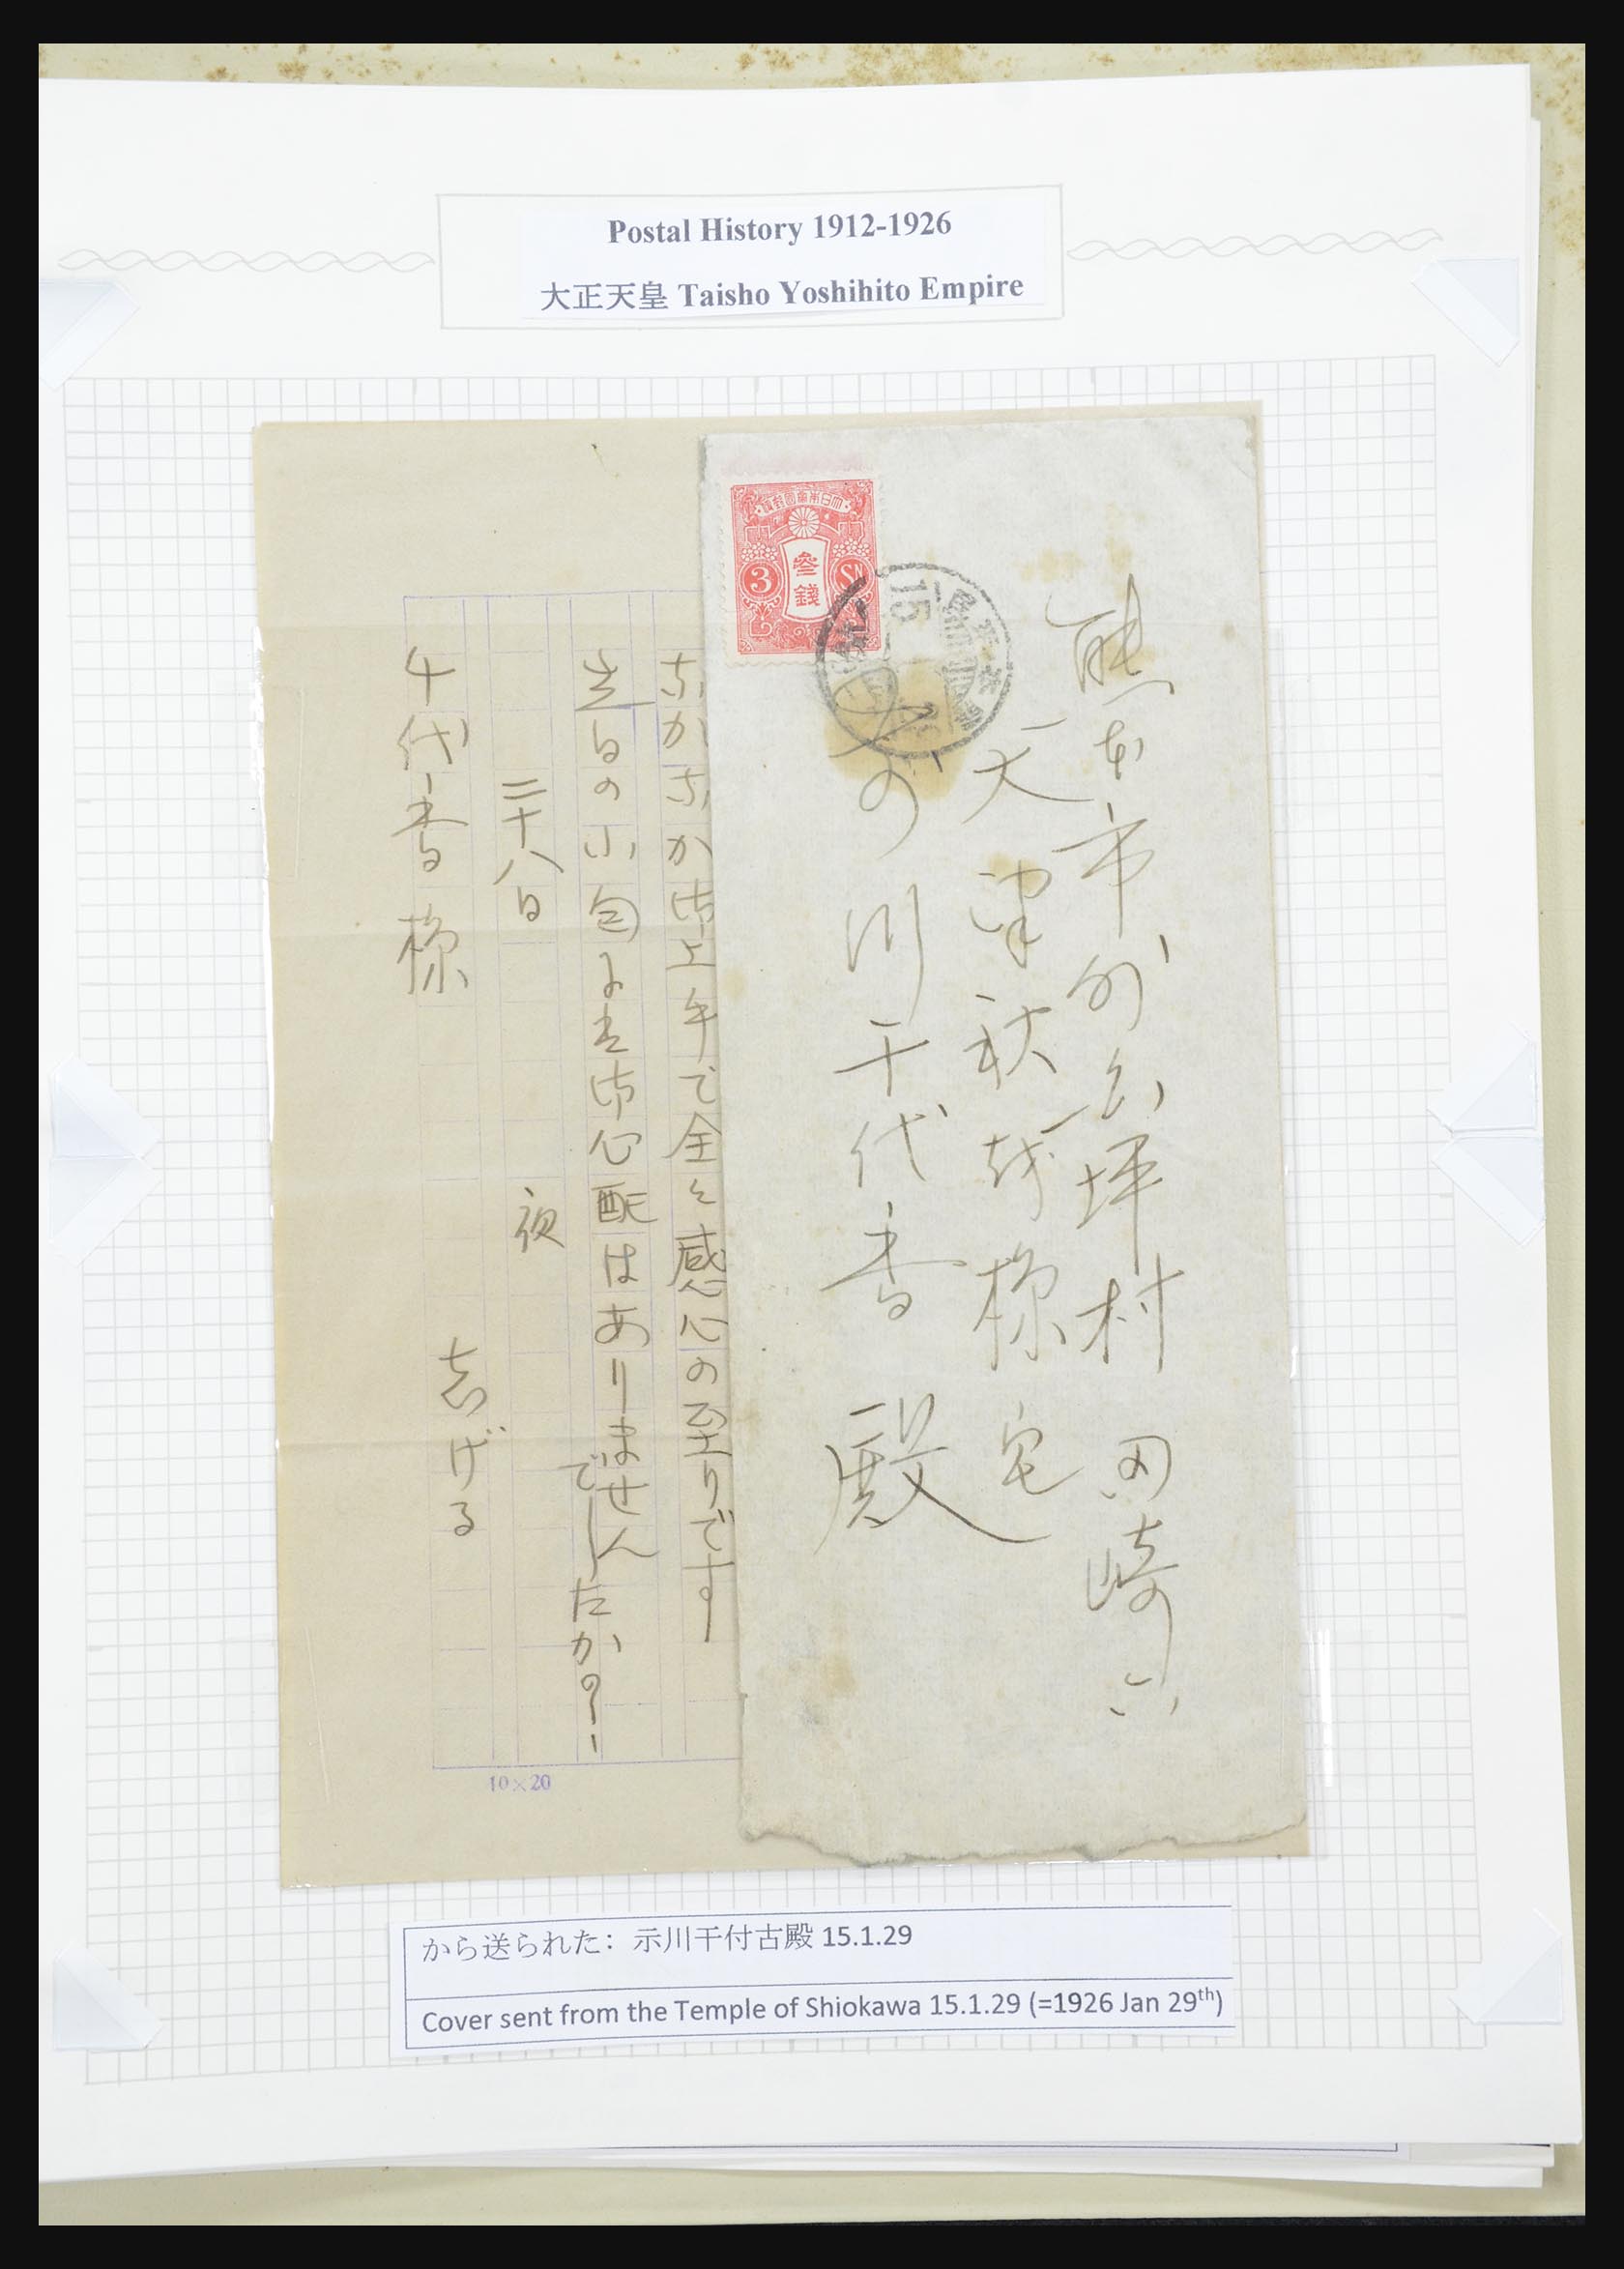 Postal History 1912-1926
大正天皇 Taisho Yoshihito Empire
大日本帝國郵便
参錢
3
SN
15
熊本市外出坪村田崎六
天津秋越様宅
川千代香殿
なかなか御上手で全く感心の至りです
立日の小包は御心配はありません
でしたか?
二十八日 夜
しげる
千代香様
10×20
から送られた: 示川干付古殿 15.1.29
Cover sent from the Temple of Shiokawa 15.1.29 (=1926 Jan 29th)